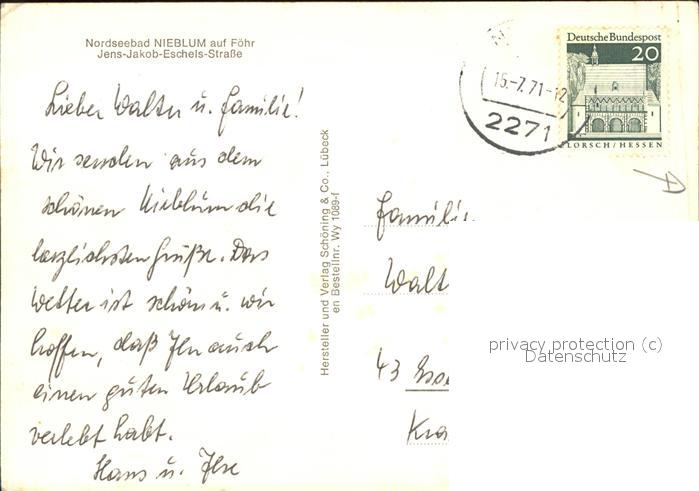 Nordseebad NIEBLUM auf Föhr
Jens-Jakob-Eschels-Straße
Lieber Walter u. Familie!
Wir senden aus dem
schönen Nieblum die
herzlichsten Grüße. Das
Wetter ist schön u. wir
hoffen, daß Ihr auch
einen guten Urlaub
verlebt habt.
Hans u. Ilse
Hersteller und Verlag Schöning & Co., Lübeck
en Bestellnr. Wy 1089-f
Deutsche Bundespost
20
LORSCH/HESSEN
15.-7.71-12
2271
Familie
Walt
43 Esse
Kra
privacy protection (c)
Datenschutz